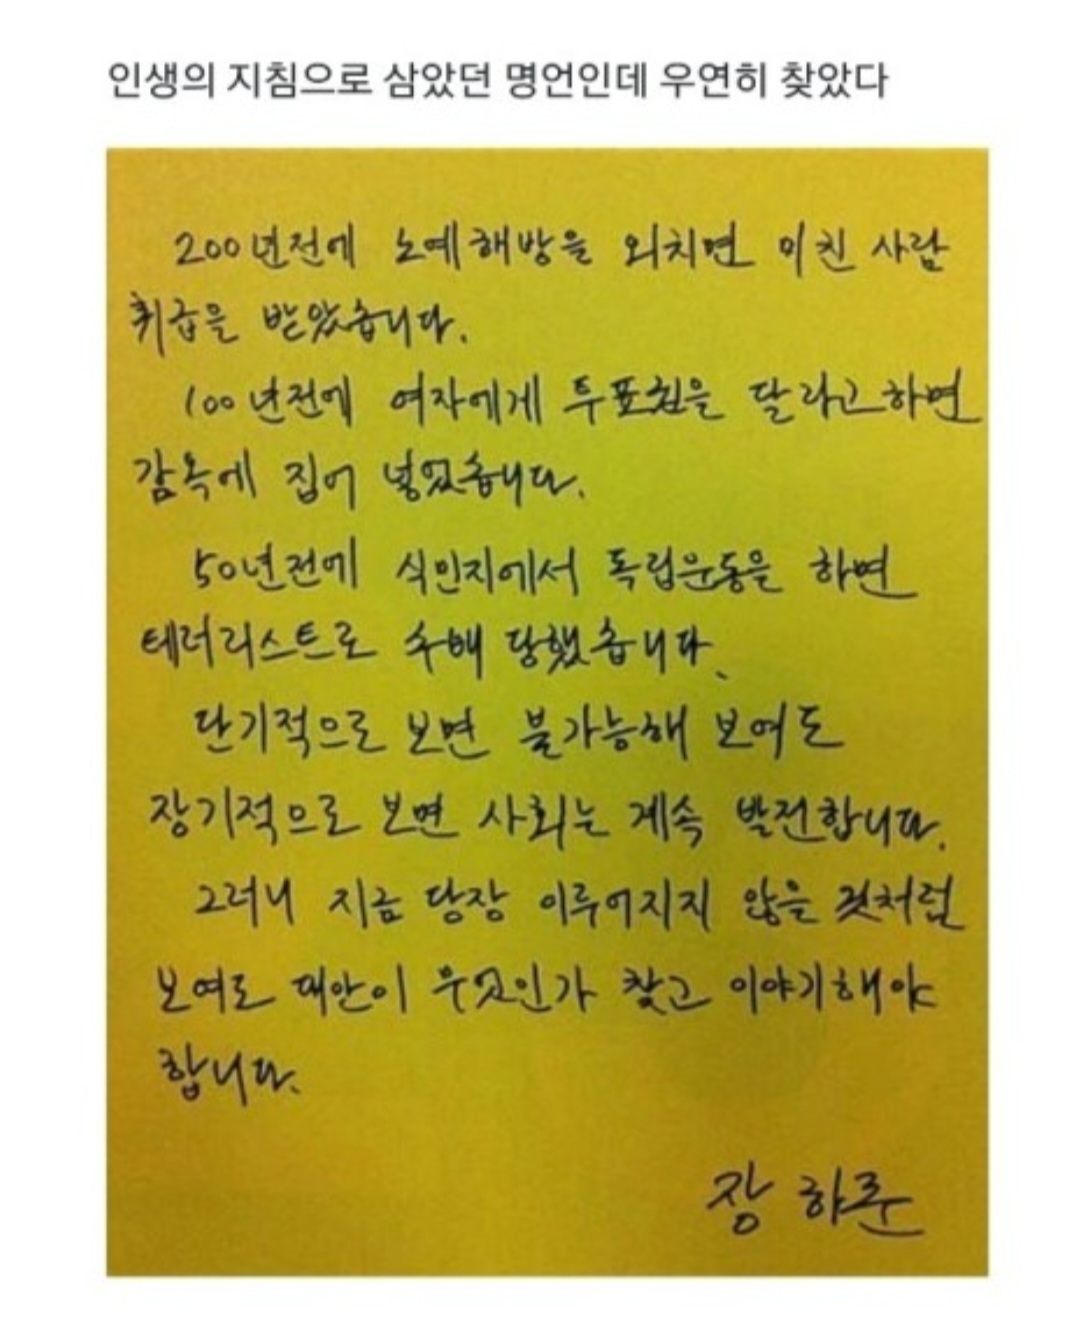 인생의 지침으로 삼았던 명언인데 우연히 찾았다
200년전에 노예해방을 외치면 미친 사람
취급을 받았습니다.
100년전에 여자에게 투표권을 달라고하면
감옥에 집어 넣었습니다.
50년전에 식민지에서 독립운동을 하면
테러리스트로 수배 당했습니다.
단기적으로 보면 불가능해 보여도
장기적으로 보면 사회는 계속 발전합니다.
그러니 지금 당장 이루어지지 않을 것처럼
보여도 대안이 무엇인가 찾고 이야기해야
합니다.
장하준